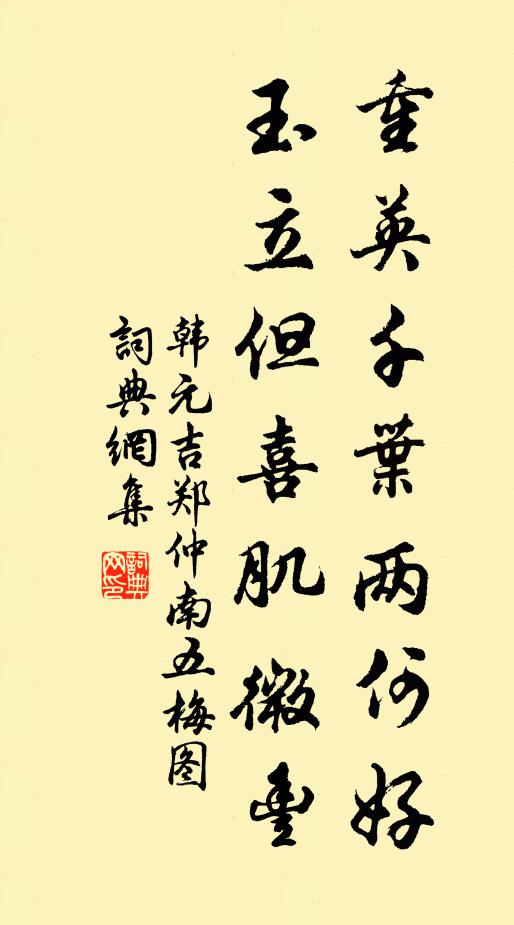 重英千葉两何好
玉立但喜肌微豐
韩元吉郑仲南五梅图
詞典網集
詞典网印